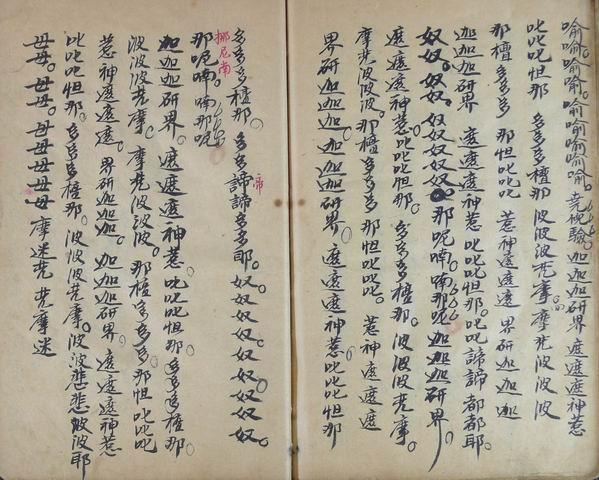 喻喻。喻喻。喻喻喻喻喻。梵倪驗。迦迦迦研界遮遮遮神惹
吡吡吡怛那 多多多檀那 波波波梵摩。摩梵波波波
那檀多多多 那怛吡吡吡 惹神遮遮遮 界研迦迦迦
迦迦迦研界 遮遮遮神惹 吡吡吡怛那。吡吡諦諦都都耶。
奴奴。奴奴。奴奴奴奴奴。那呢喃。喃那呢 迦迦迦研界。
遮遮遮神惹 吡吡吡怛那。多多多檀那。波波波梵摩。
摩梵波波波。那檀多多多 那怛吡吡吡。惹神遮遮遮
界研迦迦迦。迦迦迦研界。遮遮遮神惹 吡吡吡怛那
多多多檀那。多多諦諦多多耶。奴奴。奴奴奴奴奴奴奴。
帝
那呢喃 喃那呢
挪尼南
迦迦迦研界。遮遮遮神惹。吡吡吡怛那 多多多檀那
波波波梵摩。摩梵波波波。那檀多多多 那怛吡吡吡
惹神遮遮遮。界研迦迦迦。迦迦迦研界。遮遮遮神惹
吡吡吡怛那。多多多檀那。波波波梵摩。波波悲悲波波耶
母母。母母。母母母母母 摩迷梵 梵摩迷